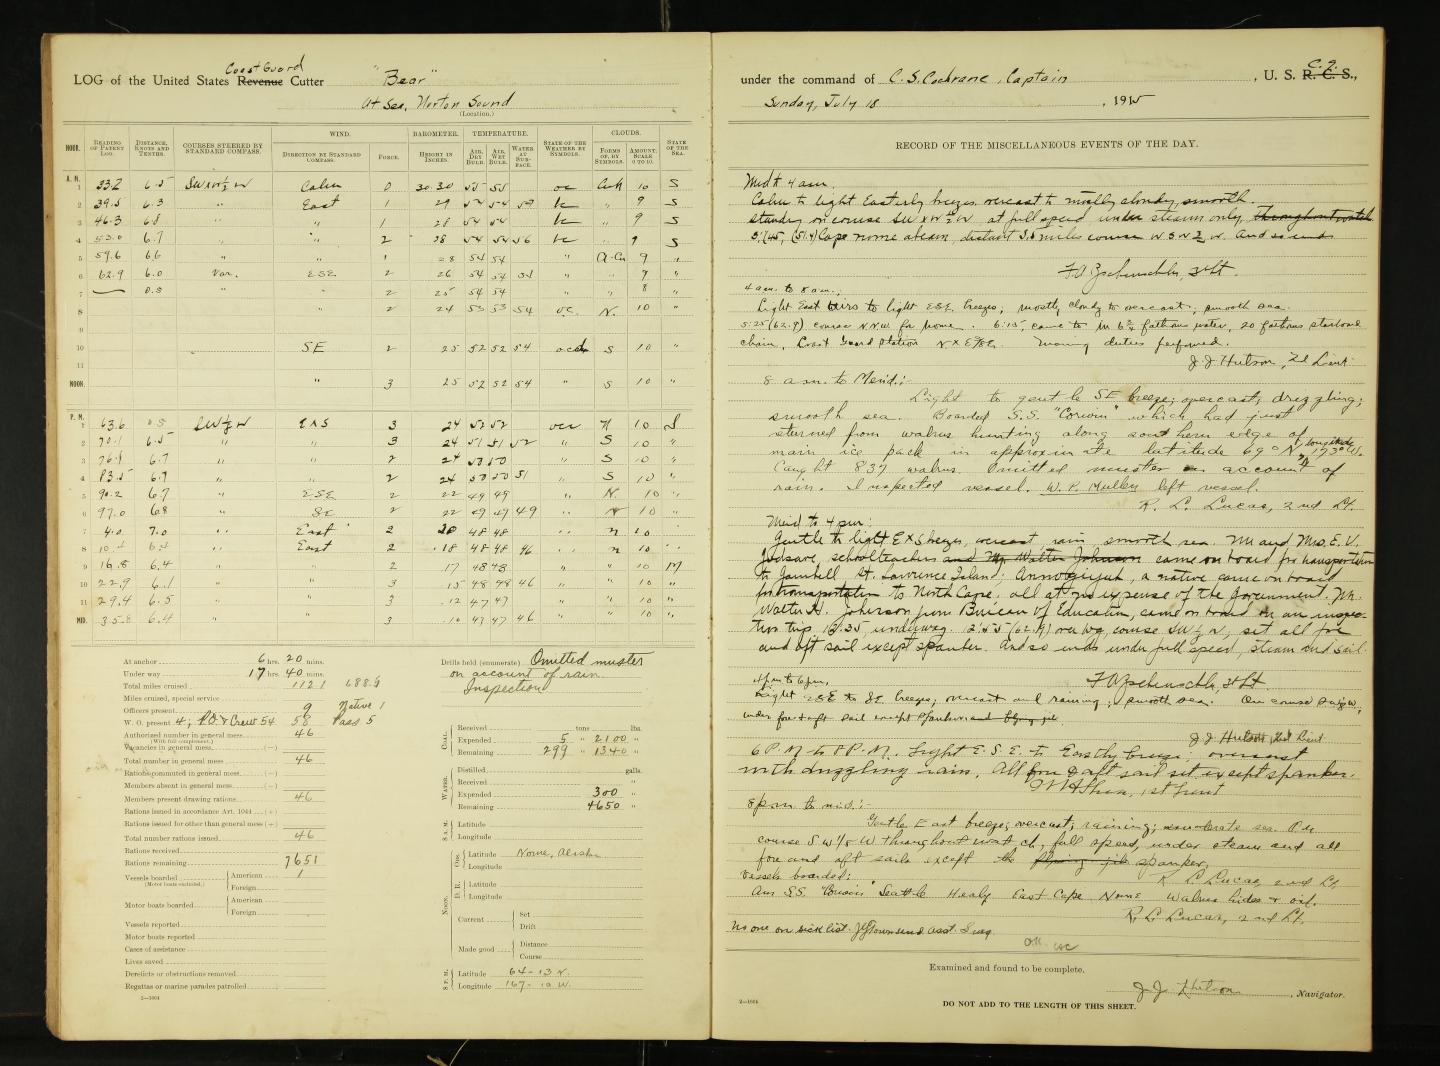 LOG of the United States Revenue Coast Guard Cutter "Bear"
At Sea, Norton Sound
(Location.)
HOUR. READING OF PATENT LOG. DISTANCE, KNOTS AND TENTHS. COURSES STEERED BY STANDARD COMPASS. WIND. DIRECTION BY STANDARD COMPASS. FORCE. BAROMETER. HEIGHT IN INCHES. TEMPERATURE. AIR, DRY BULB. AIR, WET BULB. WATER AT SURFACE. STATE OF THE WEATHER BY SYMBOLS. CLOUDS. FORMS OF, BY SYMBOLS. AMOUNT, SCALE 0 TO 10. STATE OF THE SEA.
A. M.
1 33.2 6.5 SWxW½W Calm 0 30.30 55 55 oc 10 S
2 39.5 6.3 " East 1 29 54 54 bc " 9 S
3 46.3 6.8 " " 1 28 54 54 bc " 9 S
4 53.0 6.7 " " 2 28 54 54 56 bc " 9 S
5 59.6 66 " " 1 28 54 54 " A-Cu 9 "
6 62.9 6.0 Var. ESE 2 26 54 54 " " 9 "
7 0.3 " " 2 25 54 54 " " 8 "
8 " 2 24 53 53 54 o.c. N. 10 "
9
10 SE 2 25 52 52 54 ocd S 10 "
11
NOON. " 3 25 52 52 54 " S 10 "
P. M.
1 63.6 SW½W ExS 3 24 52 52 ocr N 10 S
2 70.1 6.5 " " 3 24 51 51 52 " S 10 "
3 6.7 " " 2 24 50 50 " S 10 "
4 6.7 " " 2 24 50 50 51 " S 10 "
5 90.2 6.7 " ESE 2 22 49 49 " N. 10 "
6 97.0 6.8 " SE 2 22 49 49 49 " N 10 "
7 4.0 7.0 " East 2 20 48 48 " n 10 "
8 10.4 6.4 " East 2 .18 48 48 46 " n 10 "
9 16.8 6.4 " " 2 17 48 48 " " 10 M
10 22.9 6.1 " " 3 .15 48 48 46 " " 10 "
11 29.4 6.5 " " 3 .12 47 47 " " 10 "
MID. 35.8 6.4 " " 3 .10 47 47 46 " " 10 "
At anchor 6 hrs. 20 mins.
Under way 17 hrs. 40 mins.
Total miles cruised 112.1 688.9
Miles cruised, special service
Officers present 9 Native 1
W. O. present 4; P.O. & Crew 54 58 Pass 5
Authorized number in general mess 46
(With full complement.)
Vacancies in general mess (—)
Total number in general mess 46
Rations commuted in general mess (—)
Members absent in general mess (—)
Members present drawing rations 46
Rations issued in accordance Art. 1044 (+)
Rations issued for other than general mess (+)
Total number rations issued 46
Rations received
Rations remaining 7651
Vessels boarded American 1
(Motor boats excluded.) Foreign
Motor boats boarded American
Foreign
Vessels reported
Motor boats reported
Cases of assistance
Lives saved
Derelicts or obstructions removed
Regattas or marine parades patrolled
2—1004
Drills held (enumerate) Omitted muster
on account of rain.
Inspection
COAL. Received tons lbs.
Expended 5 " 2100 "
Remaining 299 " 1340 "
WATER. Distilled galls.
Received "
Expended 300 "
Remaining 4650 "
8 A. M. Latitude
Longitude
NOON. OBS. Latitude Nome, Alaska
Longitude
D. R. Latitude
Longitude
Current Set
Drift
Made good Distance
Course
8 P. M. Latitude 64-13 N.
Longitude 167-10 W.
under the command of C. S. Cochrane, Captain, U. S. R. C. S., C. G.
Sunday, July 18, 1915
RECORD OF THE MISCELLANEOUS EVENTS OF THE DAY.
Mid to 4 am.
Calm to light Easterly breezes overcast to mostly cloudy, smooth.
standing on course SWxW½W at full speed under steam only, throughout watch
3:45, (51.4) Cape nome abeam, distant miles course W S W ½ W. And so ends
4 a.m. to 8 a.m.;
Light East airs to light ESE. breezes, mostly cloudy to overcast, smooth sea.
5:25 (62.9) course N.N.W. for Nome. 6:15, came to in 6¾ fathoms water, 20 fathoms starboard
chain, Coast Guard Station NxE⅞E. Morning duties performed.
J. J. Hutson, 2d Lieut
8 a.m. to Merid.:-
Light to gentle SE breeze; overcast; drizzling;
smooth sea. Boarded S.S. "Corwin" which had just
returned from walrus hunting along southern edge of
main ice pack in approximate latitude 69° N, longitude 173° W.
Caught 837 walrus. Omitted muster on account of
rain. Inspected vessel. W. P. Mulley left vessel.
R. L. Lucas, 2nd Lt.
Merid to 4 pm:
Gentle to light ExS breezes, overcast rain, smooth sea. Mr and Mrs. E. V.
schoolteachers and Mr. Walter Johnson came on board for transportation
to Gambell St. Lawrence Island; a native came on board
for transportation to North Cape. all at no expense of the Government. Mr.
Walter H. Johnson from Bureau of Education, came on board on an inspec-
tion trip. 12:35, underway. 12:55 (62.9) over log, course SW½W, set all fore
and aft sail except spanker. And so ends under full speed, steam and sail.
4 pm to 6 pm,
Light ESE to SE breezes; overcast and raining; smooth sea. On course SW½W,
under fore & aft sail except spanker and flying jib
J. J. Hutson, 2d Lieut
6 P.M. to 8 P.M. Light E.S.E. to Eastly breeze; overcast
with drizzling rain. All fore & aft sail set except spanker.
1st Lieut
8 p.m. to mid.:-
Gentle East breeze; overcast; raining; moderate sea. On
course SW½W throughout watch, full speed, under steam and all
fore and aft sails except the flying jib spanker.
R. L. Lucas, 2nd Lt.
Vessels boarded:
Am S.S. "Corwin" Seattle Healy East Cape Nome Walrus hides & oil.
R. L. Lucas, 2nd Lt.
No one on sick list. J G Townsend Asst. Surg.
Examined and found to be complete.
J. J. Hutson, Navigator.
2—1004
DO NOT ADD TO THE LENGTH OF THIS SHEET.